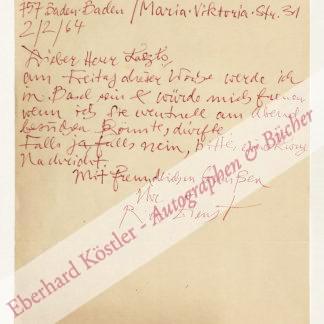 757 Baden-Baden / Maria-Viktoria-Str. 31
2/2/64
Lieber Herr Laszlo
am Freitag dieser Woche werde ich
in Basel sein & würde mich freuen
wenn ich Sie eventuell am Abend
besuchen könnte/dürfte
Falls ja, falls nein, bitte
Nachricht.
Mit freundlichen Grüßen
Ihr
Eberhard Köstler - Autographen & Bücher